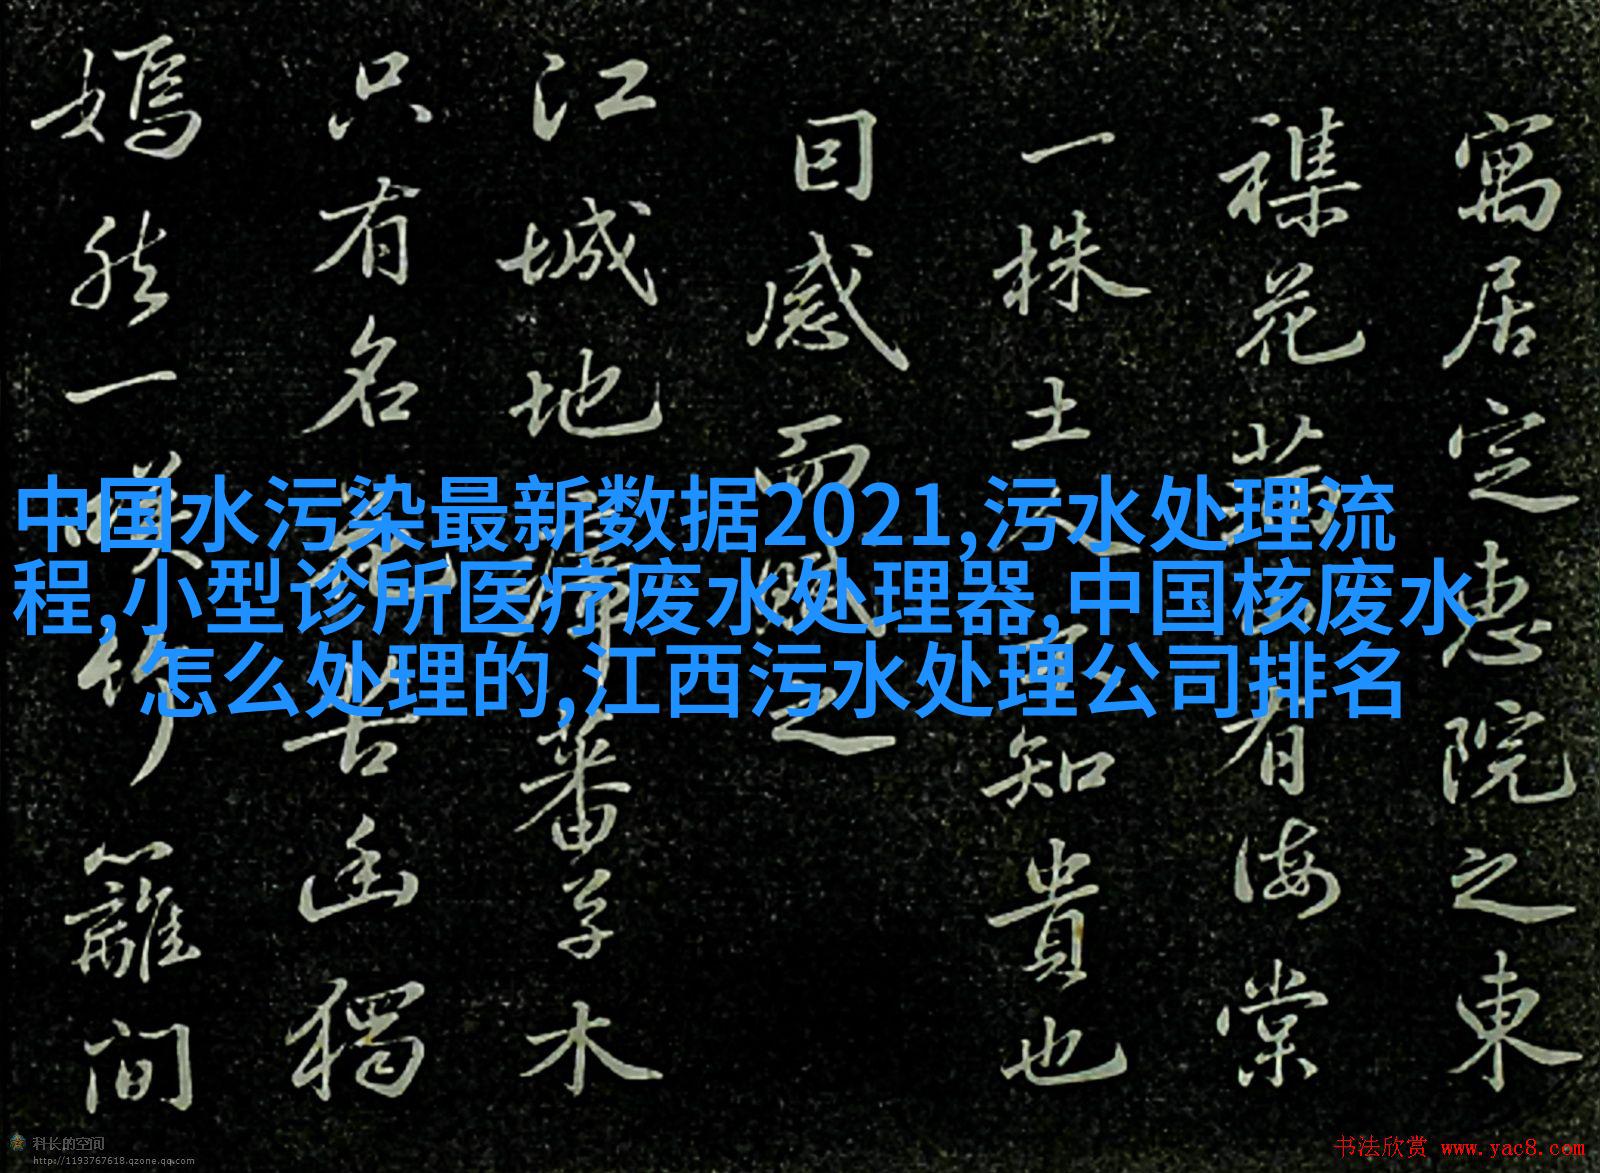 寓居定惠院之東
襍花有海棠
一株土知貴也
囙感而之
江城地瘴蕃草木
只有名花苦幽獨
嫣然一笑竹籬間
中国水污染最新数据2021,污水处理流
程,小型诊所医疗废水处理器,中国核废水
怎么处理的,江西污水处理公司排名
科长的空间
http://1193767618.qzone.qq.com
书法欣赏 www.yac8.com